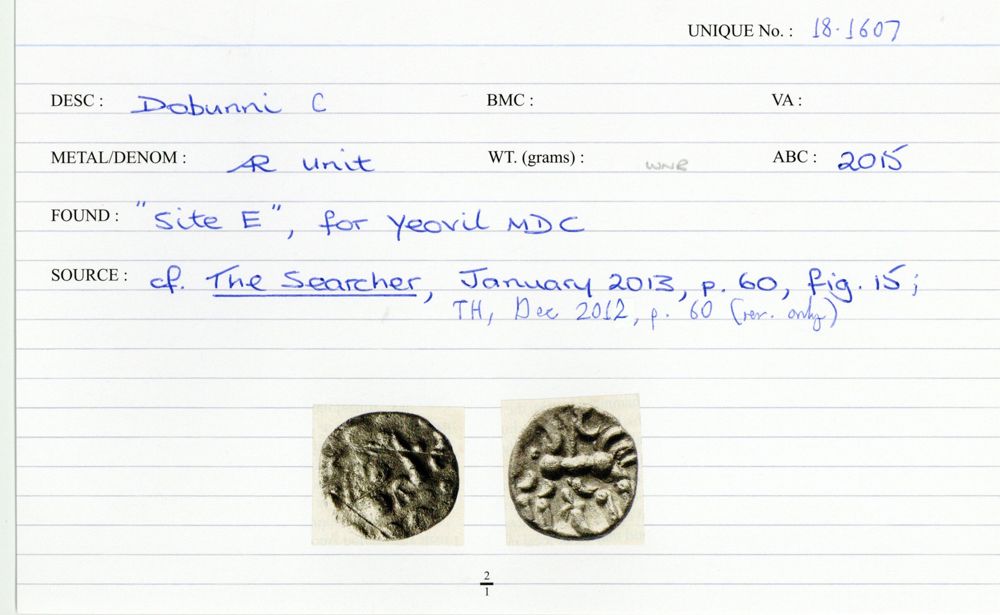 UNIQUE No. : 18.1607
DESC : Dobunni C BMC : VA :
METAL/DENOM : AR unit WT. (grams) : WNR ABC : 2015
FOUND : "Site E", for Yeovil MDC
SOURCE : cf. The Searcher, January 2013, p. 60, fig. 15;
TH, Dec 2012, p. 60 (rev. only)
2
1